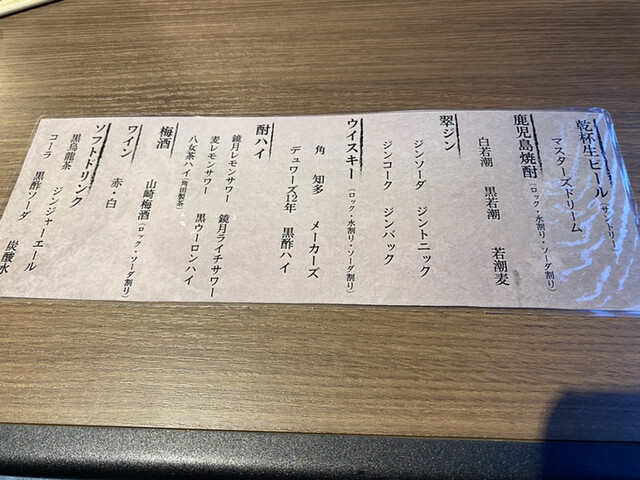 乾杯生ビール（サントリー）
マスターズドリーム
鹿児島焼酎（ロック・水割り・ソーダ割り）
白若潮　黒若潮　若潮麦
翠ジン
ジンソーダ　ジントニック
ジンコーク　ジンバック
ウイスキー（ロック・水割り・ソーダ割り）
角　知多　メーカーズ
デュワーズ12年　黒酢ハイ
酎ハイ
鏡月レモンサワー　鏡月ライチサワー
麦レモンサワー　黒ウーロンハイ
八女茶ハイ（角田製茶）
梅酒
山崎梅酒（ロック・ソーダ割り）
ワイン
赤・白
ソフトドリンク
黒烏龍茶　ジンジャーエール
コーラ　黒酢ソーダ　炭酸水